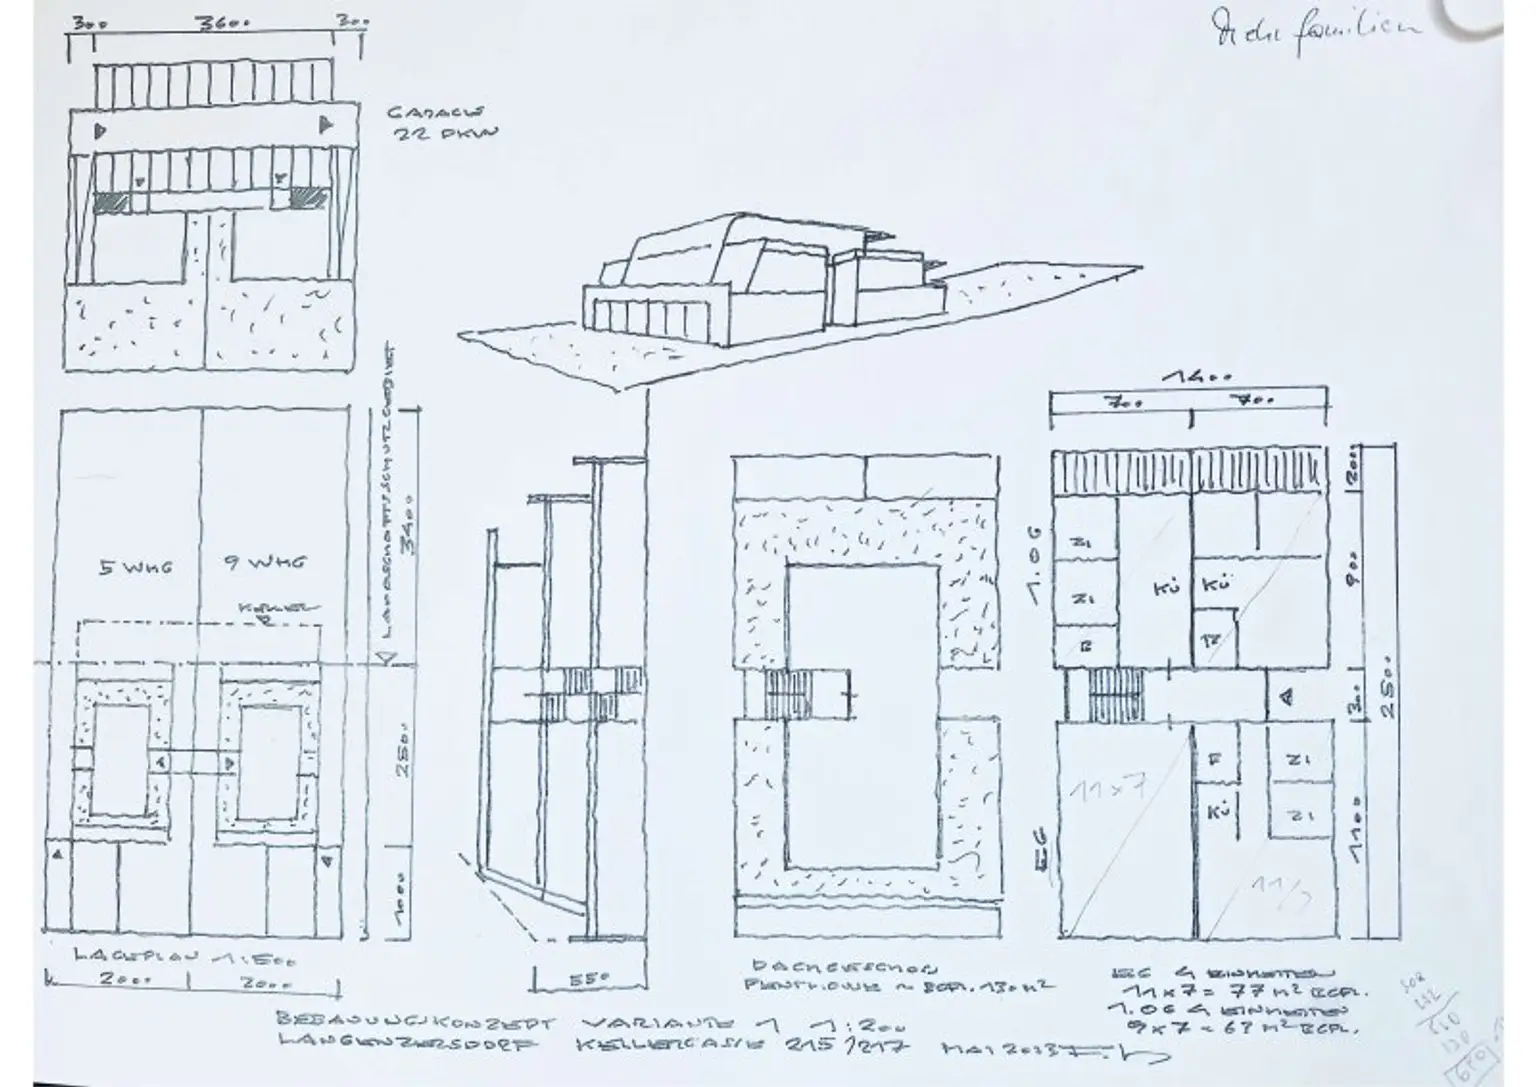 Mehrfamilien
300 3600 300
GARAGE
22 PKW
LANDSCHAFTSSCHUTZGEBIET
3400
5 WHG
9 WHG
KELLER
2500
1000
LAGEPLAN 1:500
2000 2000
550
DACHGESCHOSS
PENTHOUSE ~ BGFL. 130 M²
1400
700 700
1.OG
ZI
ZI
B
KÜ
KÜ
ZI
ZI
KÜ
EG
11x7
200
900
300
1100
2500
EG 4 EINHEITEN
11 x 7 = 77 M² BGFL.
1.OG 4 EINHEITEN
9 x 7 = 63 M² BGFL.
BEBAUUNGSKONZEPT VARIANTE 1 1:200
LANGENZERSDORF KELLERGASSE 215/217 MAI 2023
308